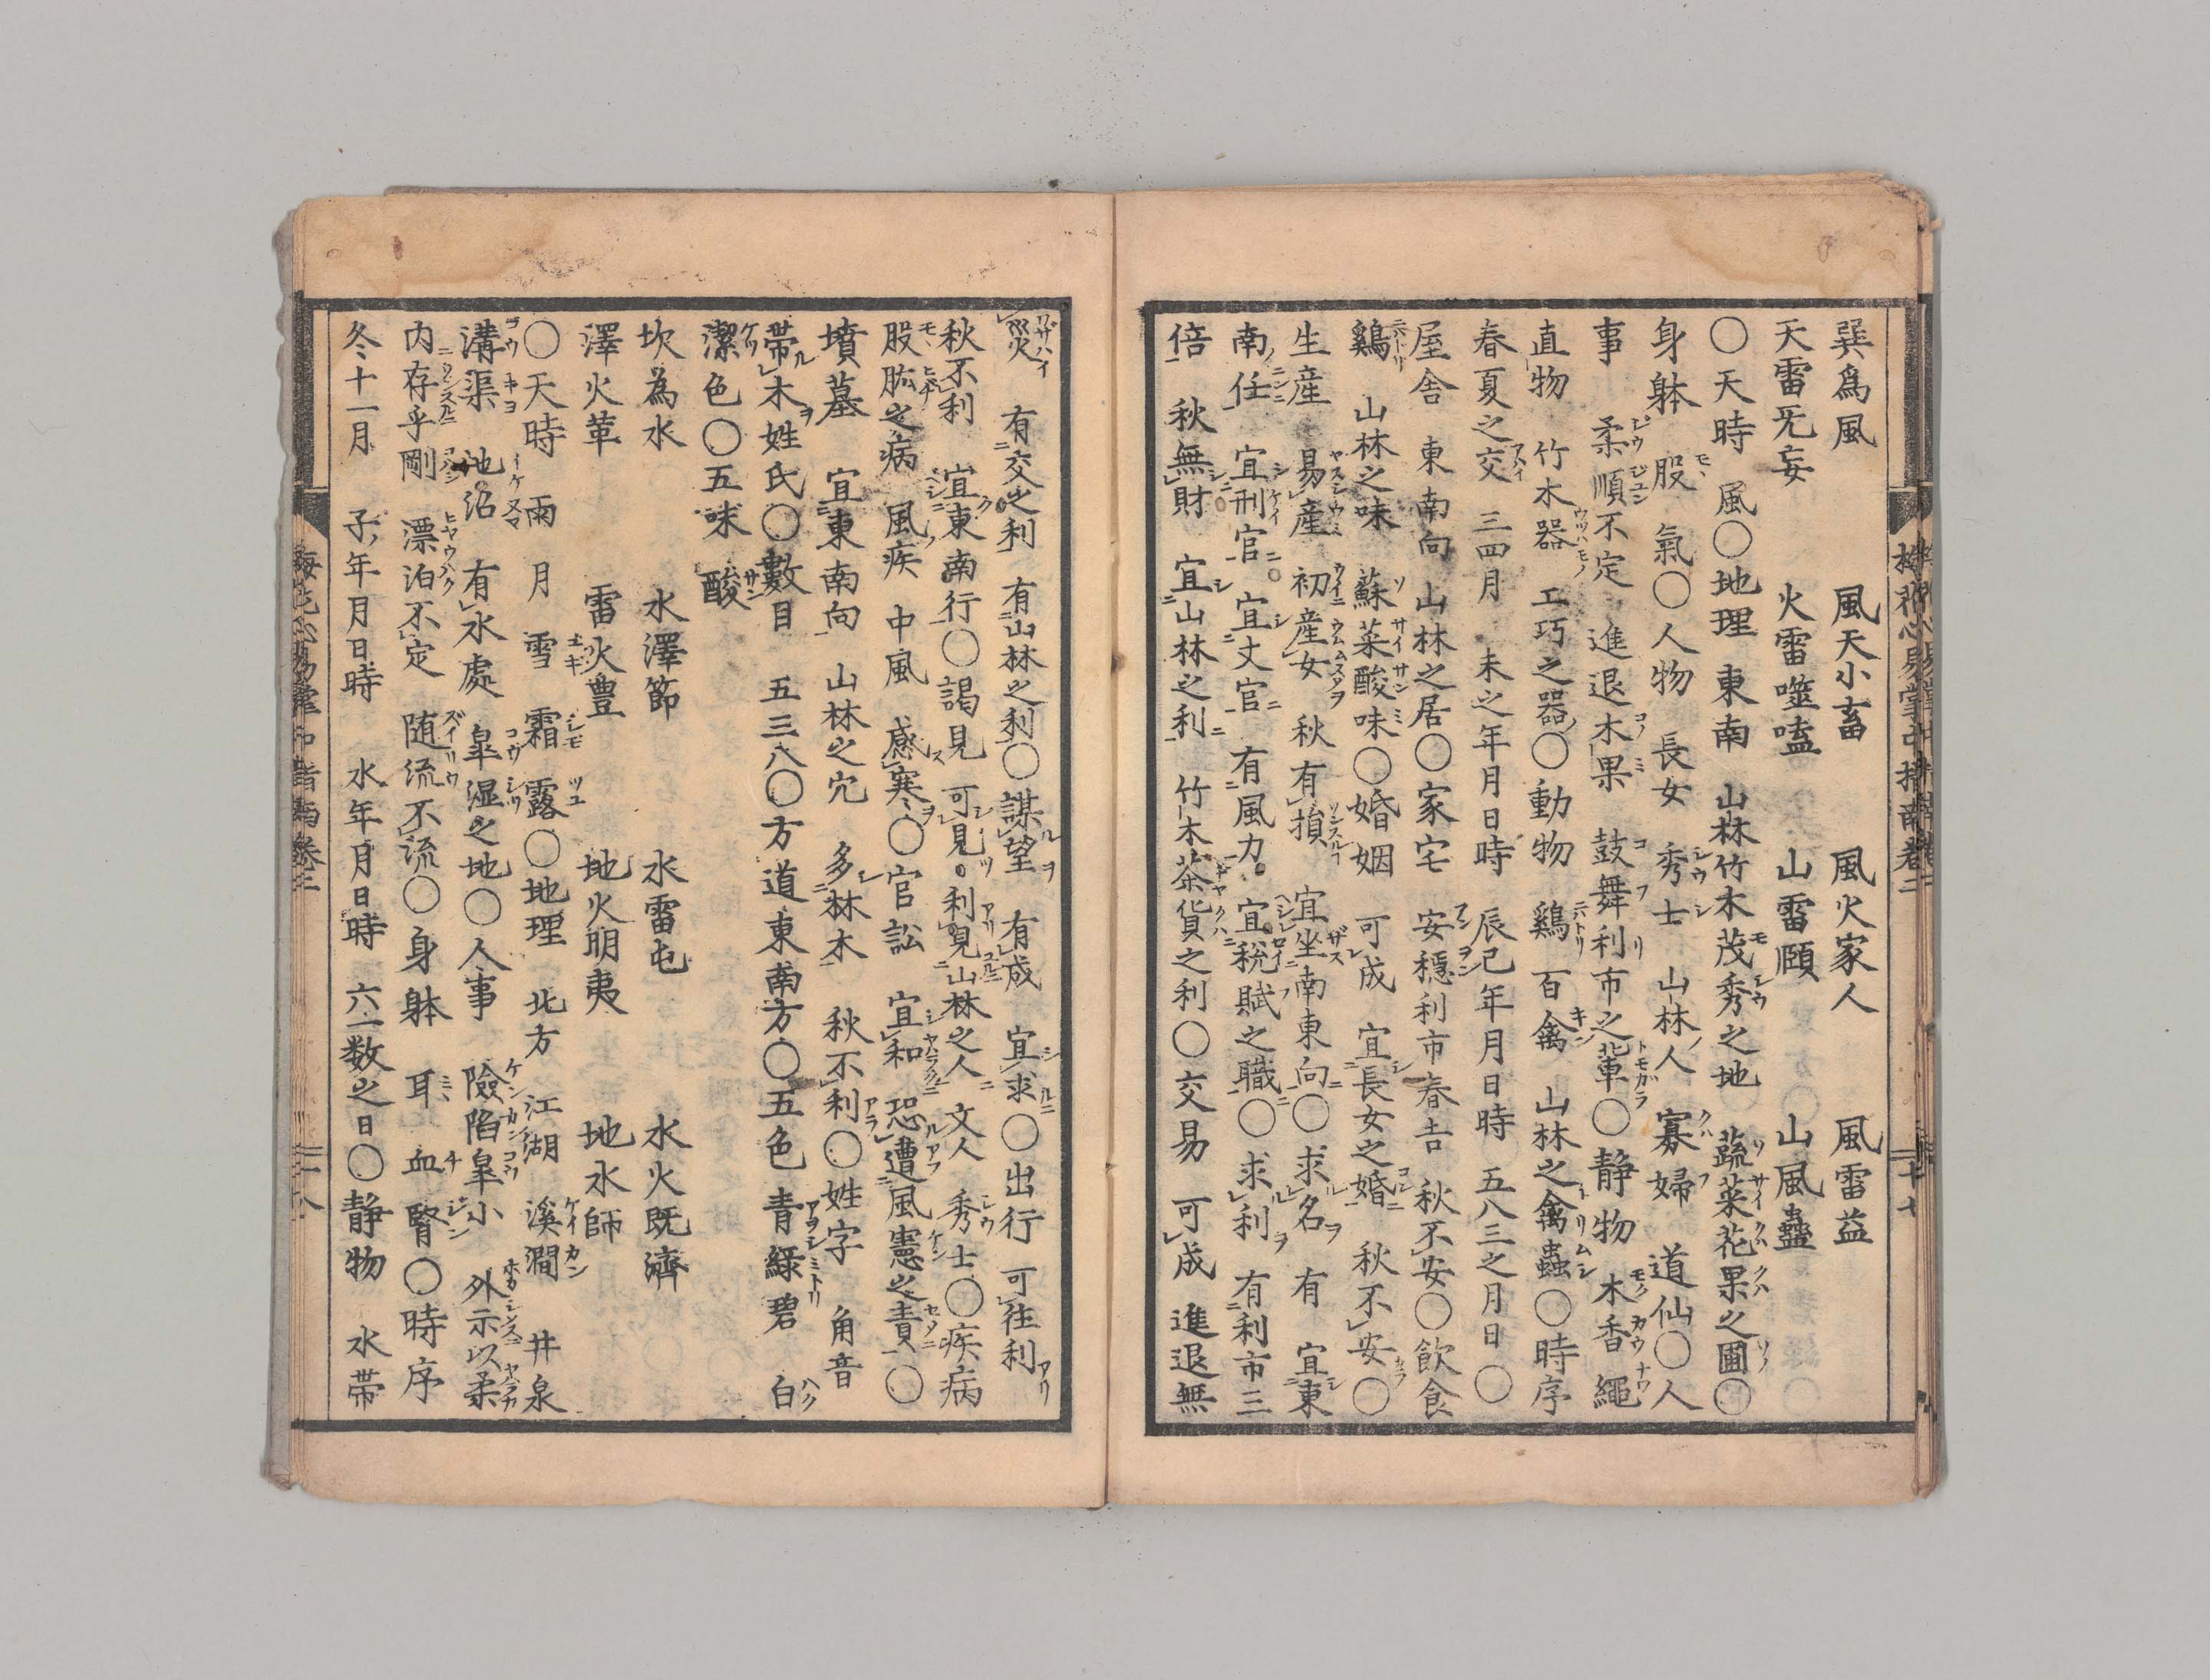 巽爲風　風天小畜　風火家人　風雷益
天雷旡妄　火雷噬嗑　山雷頤　山風蠱
〇天時　風〇地理　東南　山林竹木茂秀之地　蔬菜花果之圃〇
身躰　股　氣〇人物　長女　秀士　山林人　寡婦　道仙〇人
事　柔順不定　進退木果　鼓舞利市之輩〇静物　木香　繩
直物　竹木器　工巧之器〇動物　鷄　百禽　山林之禽蟲〇時序
春夏之交　三四月　未之年月日時　辰巳年月日時　五八三之月日〇
屋舍　東南向　山林之居〇家宅　安穏利市春吉　秋不安〇飲食
鷄　山林之味　蘇菜酸味〇婚姻　可成　宜長女之婚　秋不安〇
生産　易産　初産女　秋有損　宜坐南東向〇求名　有　宜東
南任　宜刑官　宜丈官　有風力　宜税賦之職〇求利　有利市三
倍　秋無財　宜山林之利　竹木茶貨之利〇交易　可成　進退無
災　有交之利　有山林之利〇謀望　有成　宜求〇出行　可往利
秋不利　宜東南行〇謁見　可見　利見山林之人　文人　秀士〇疾病
股肱之病　風疾　中風　感寒〇官訟　宜和　恐遭風憲之責〇
墳墓　宜東南向　山林之穴　多林木　秋不利〇姓字　角音
帯木姓氏〇數目　五三八〇方道東南方〇五色　青緑碧　白
潔色〇五味　酸
坎為水　水澤節　水雷屯　水火既濟
澤火革　雷火豊　地火明夷　地水師
〇天時　雨　月　雪　霜　露〇地理　北方　江湖　溪澗　井泉
溝渠　池沼　有水處　皐湿之地〇人事　險陷皐小　外示以柔
内存乎剛　漂泊不定　随流不流〇身躰　耳　血　腎〇時序
冬十一月　子年月日時　水年月日時　六一数之日〇静物　水帯